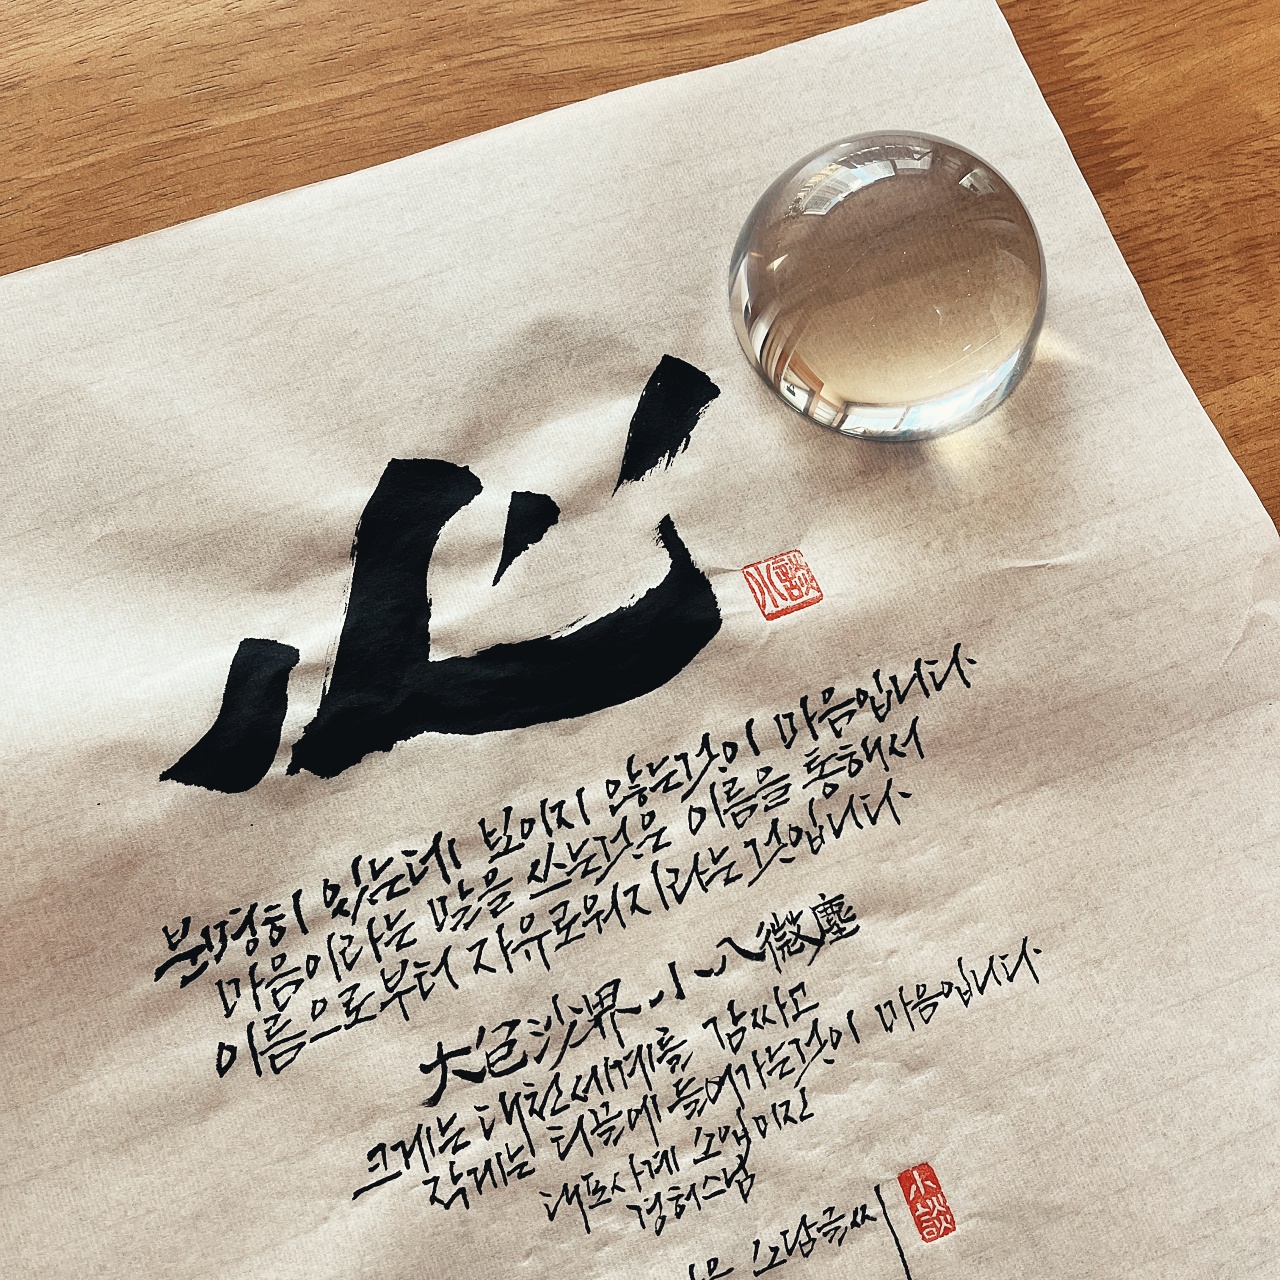 心
小談
분명히 있는데 보이지 않는것이 마음입니다.
마음이라는 말을 쓰는것은 이름을 통해서
이름으로부터 자유로워지라는 것입니다.
大包沙界 小入微塵
크게는 대천세계를 감싸고
작게는 티끌에 들어가는것이 마음입니다.
대포사계 소입미진
경허스님
소담글씨
小談